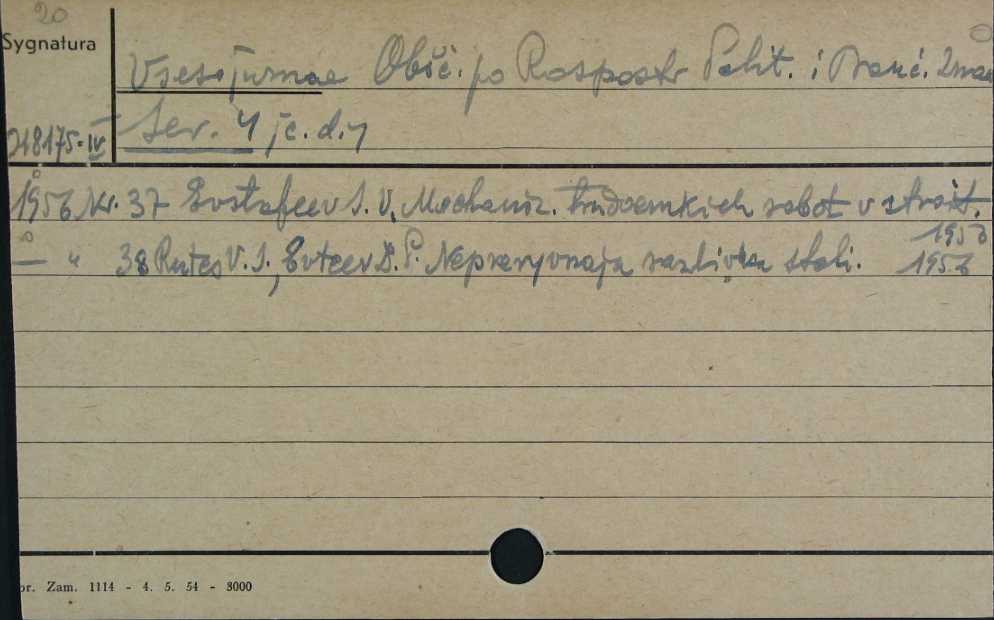 20
Sygnatura
Vsesojuznae Obšč. po Rospostr Polit. i Nauč. Znan
218175-IV Ser. 4 /c.d./
1956 Nr. 37 Evstafeev S. V. Mechaniz. trudoemkich rabot v stroit. 1956
— " 38 Rutes V. S., Evteev D. P. Nepreryvnaja razlivka stali. 1956
or. Zam. 1114 - 4. 5. 54 - 3000